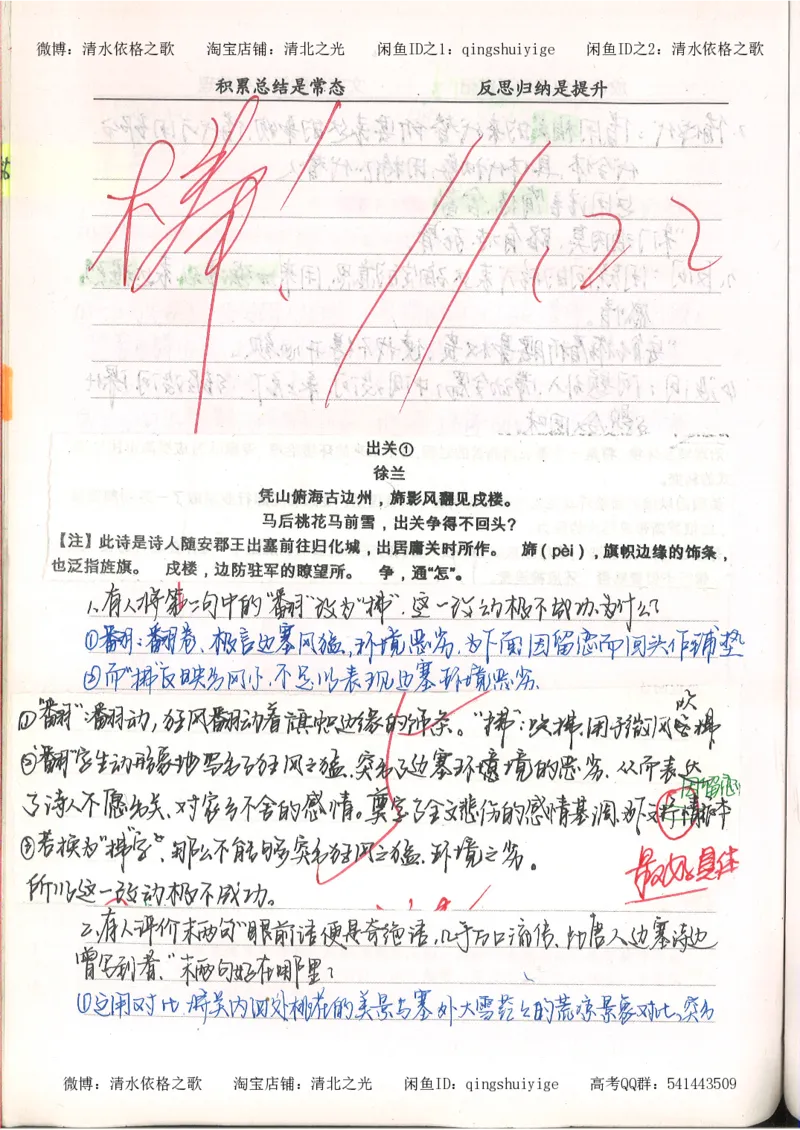 微博：清水依格之歌 淘宝店铺：清北之光 闲鱼ID之1：qingshuiyige 闲鱼ID之2：清水依格之歌
积累总结是常态 反思归纳是提升
棒！11.22
出关①
徐兰
凭山俯海古边州，旆影风翻见戍楼。
马后桃花马前雪，出关争得不回头？
【注】此诗是诗人随安郡王出塞前往归化城，出居庸关时所作。 旆（pèi），旗帜边缘的饰条，
也泛指旌旗。 戍楼，边防驻军的瞭望所。 争，通“怎”。
1.有人将第二句中的“翻”改为“拂”，这一改动极不成功，为什么？
①翻：翻卷，极言边塞风猛，环境恶劣，为下面因留恋而回头作铺垫
②而“拂”反映出风小，不足以表现边塞环境恶劣。
①“翻”：翻动，狂风翻动着旗帜边缘的饰条。“拂”：吹拂，用于微风吹拂
②“翻”字生动形象地写出了狂风之猛，突出了边塞环境的恶劣，从而表达
因留恋
了诗人不愿出关，对家乡不舍的感情。奠定了全文悲伤的感情基调，为下文
③若换为“拂”字，那么不能够突出狂风之猛，环境之劣。
最好具体
所以这一改动极不成功。
2.有人评价末两句“眼前语便是奇绝语，几乎万口流传，为唐人边塞诗边
曾写到者。”末两句好在哪里？
①运用对比，将关内的美景与塞外大雪茫茫的荒凉景象对比，突出
微博：清水依格之歌 淘宝店铺：清北之光 闲鱼ID：qingshuiyige 高考QQ群：541443509